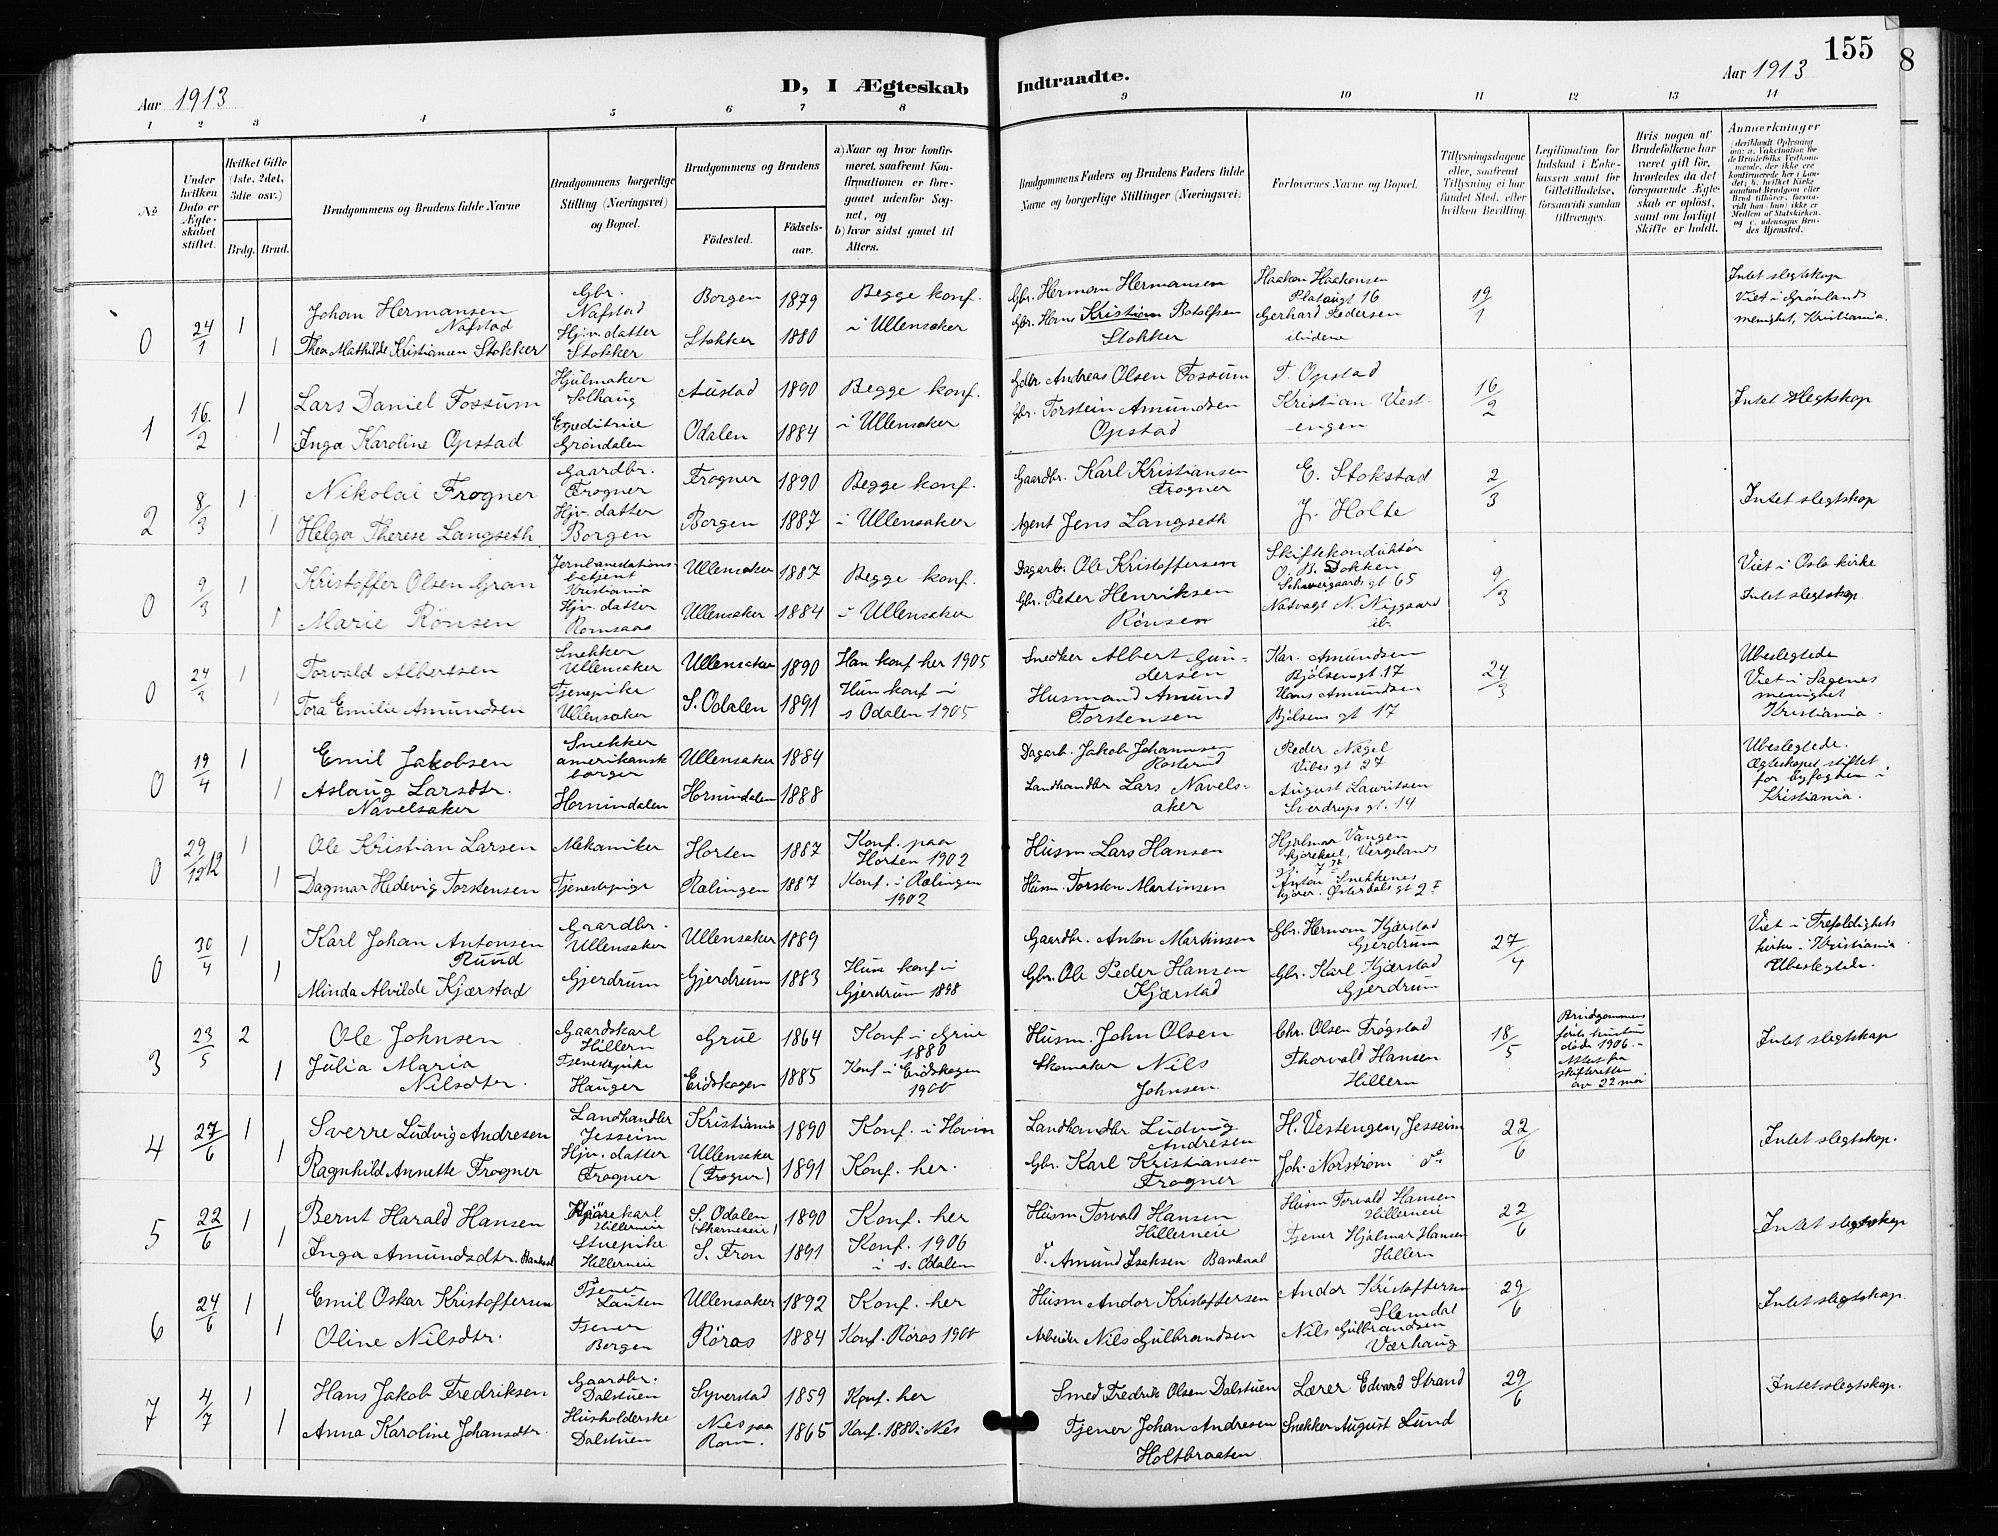 155
8
Aar 1913
D, I Ægteskab Indtraadte.
Aar 1913
1 2 3 4 5 6 7 8 9 10 11 12 13 14
No
Under hvilken Dato er Ægteskabet stiftet.
Hvilket Gifte (1ste, 2det, 3die osv.)
Brdg. Brud.
Brudgommens og Brudens fulde Navne
Brudgommens borgerlige Stilling (Næringsvei) og Bopæl.
Brudgommens og Brudens
Födested.
Födselsaar.
a) Naar og hvor konfirmeret, saafremt Konfirmationen er foregaaet udenfor Sognet, og
b) hvor sidst gaaet til Alters.
Brudgommens Faders og Brudens Faders fulde Navne og borgerlige Stillinger (Næringsvei)
Forlovernes Navne og Bopæl.
Tillysningsdagene eller, saafremt Tillysning ei har fundet Sted, efter hvilken Bevilling.
Legitimation for Indskud i Enkekassen samt for Giftetilladelse, forsaavidt saadan tiltrænges.
Hvis nogen af Brudefolkene har været gift før, hvorledes da det foregaaende Ægteskab er oplöst, samt om lovligt Skifte er holdt.
Anmerkninger
(deriblandt Oplysning om: a. Vakcination for de Brudefolks Vedkommende, der ikke ere konfirmerede her i Landet; b. hvilket Kirkesamfund Brudgom eller Brud tilhører, forsaavidt han (hun) ikke er Medlem af Statskirken, og c. udensogns Brudes Hjemsted.
0 24/1 1 Johan Hermansen Nafstad Gbr. Nafstad Borgen 1879 Begge konf. i Ullensaker Gbr. Herman Hermansen Haakon Haakensen Platougt 16 19/1 Intet slegtskap
1 Thea Mathilde Kristiansen Stokker Hjv. datter Stokker Stokker 1880 Gbr. Hans Kristian Botolfsen Stokker Gerhard Pedersen ibidene Viet i Grønlands menighet, Kristiania.
1 16/2 1 Lars Daniel Fossum Hjulmaker Solhaug Austad 1890 Begge konf. i Ullensaker Gdbr. Andreas Olsen Fossum T. Opstad 16/2 Intet slegtskap
1 Inga Karoline Opstad Expeditrice Grøndalen Odalen 1884 Gbr. Torstein Amundsen Opstad Kristian Vestengen
2 8/3 1 Nikolai Frogner Gaardbr. Frogner Frogner 1890 Begge konf. i Ullensaker Gaardbr. Karl Kristiansen Frogner E. Stokstad 2/3 Intet slegtskap
1 Helga Therese Langseth Hjv. datter Borgen Borgen 1887 Agent Jens Langseth J. Holte
0 9/3 1 Kristoffer Olsen Gran Jernbanestationsbetjent Kristiania Ullensaker 1887 Begge konf. i Ullensaker Dagarb. Ole Kristoffersen Skiftekonduktør O. B. Dokken Schweigaards gt 65 9/3 Viet i Oslo kirke
1 Marie Rønsen Hjv. datter Romsaas Ullensaker 1884 Gbr. Peter Henriksen Rønsen Natvagt N. Nygaard ib. Intet slegtskap.
0 24/3 1 Torvald Albertsen Snekker Ullensaker Ullensaker 1890 Han konf her 1905 Snedker Albert Gundersen Kar. Amundsen Bjølsengt. 17 24/3 Ubeslegtede
1 Tora Emilie Amundsen Tjenepike Ullensaker S. Odalen 1891 Hun konf i s Odalen 1905 Husmand Amund Torstensen Hans Amundsen Bjølsens gt 17 Viet i Sagenes menighet Kristiania.
0 19/4 1 Emil Jakobsen Snekker amerikansk borger Ullensaker 1884 Dagarb. Jakob Johannesen Rosterud Peder Nagel Vibes gt 27 Ubeslegtede.
1 Aslaug Larsdtr. Navelsaker Hornindalen Hornindalen 1888 Landhandler Lars Navelsaker August Lauritsen Sverdrups gt. 14 Ægteskapet stiftet for byfogden i Kristiania.
0 29/12 12 1 Ole Kristian Larsen Mekaniker Horten 1887 Konf. paa Horten 1902 Husm. Lars Hansen Hjalmar Vangen kjørekarl, Vergelands gt. 7
1 Dagmar Hedevig Torstensen Tjenestepige Rælingen 1887 Konf. i Rælingen 1902 Husm. Torsten Martinsen Anton Snekkenes kjører. Østerdals gt 2
0 30/4 1 Karl Johan Antonsen Ruud Gaardbr. Ullensaker Ullensaker 1889 Gaardbr. Anton Martinsen Gbr. Herman Kjærstad Gjerdrum 27/4 Viet i Trefoldighets kirke i Kristiania.
1 Minda Alvilde Kjærstad Gjerdrum Gjerdrum 1883 Hun konf i Gjerdrum 1898 Gbr. Ole Peder Hansen Kjærstad Gbr. Karl Kjærstad Gjerdrum Ubeslegtede.
3 23/5 2 Ole Johnsen Gaardskarl Hillern Grue 1864 Konf i Grue 1880 Husm. John Olsen Chr. Olsen Frøgstad 18/5 Brudgommens første hustru døde 1906. - Attest fra skifteretten av 22 mai Intet slegtskap
1 Julia Maria Nilsdtr. Tjenestepike Hauger Eidskogen 1885 Konf i Eidskogen 1900 Skomaker Nils Johnsen Thorvald Hansen Hillern
4 27/6 1 Sverre Ludvig Andresen Landhandler Jesseim Kristiania 1890 Konf. i Hovin Landhandler Ludvig Andresen H. Vestengen, Jesseim 22/6 Intet slegtskap.
1 Ragnhild Annette Frogner Hjv. datter Frogner Ullensaker (Frogner) 1891 Konf. her. Gbr. Karl Kristiansen Frogner Joh. Norstrøm do
5 22/6 1 Bernt Harald Hansen Kjørekarl Hillerneie S. Odalen (Skarneseie) 1890 Konf. her Husm Torvald Hansen Hillerneie Husm Torvald Hansen Hillerneie 22/6 Intet slegtskap
1 Inga Amundsdtr. Bankaal Stuepike Hillerneie S. Fron 1891 Konf. 1906 i s. Odalen Amund Isaksen Bankaal Tjener Hjalmar Hansen Hillern
6 24/6 1 Emil Oskar Kristoffersen Tjener Lauten Ullensaker 1892 Konf. her Husm Andor Kristoffersen Andor Kristoffersen Slemdal 29/6 Intet slegtskap.
1 Oline Nilsdtr. Tjener Borgen Röros 1884 Konf. Röros 1900 Arbeider Nils Gulbrandsen Nils Gulbrandsen Værhaug
7 4/7 1 Hans Jakob Fredriksen Gaardbr. Dalstuen Syverstad 1859 Konf. her Smed Fredrik Olsen Dalstuen Lærer Edvard Strand 29/6 Intet slegtskap.
1 Anna Karoline Johansdtr. Husholderske Dalstuen Nes paa Rom. 1865 Konf. 1880 i Nes Tjener Johan Andresen Holtbraaten Snekker August Lund